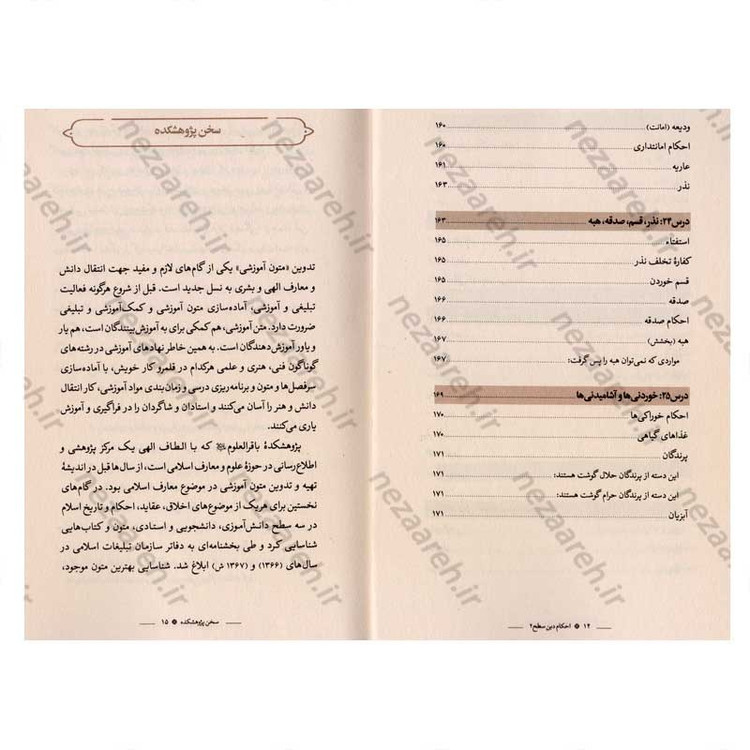 ودیعه (امانت) ۱۶۰
احکام امانتداری ۱۶۰
عاریه ۱۶۱
نذر ۱۶۳
درس۲۴: نذر، قسم، صدقه، هبه ۱۶۳
استفتاء ۱۶۵
کفارهٔ تخلف نذر ۱۶۵
قسم خوردن ۱۶۵
صدقه ۱۶۶
احکام صدقه ۱۶۶
هبه (بخشش) ۱۶۷
مواردی که نمی‌توان هبه را پس گرفت: ۱۶۷
درس۲۵: خوردنی‌ها و آشامیدنی‌ها ۱۶۹
احکام خوراکی‌ها ۱۷۰
غذاهای گیاهی ۱۷۰
پرندگان ۱۷۱
این دسته از پرندگان حلال گوشت هستند: ۱۷۱
این دسته از پرندگان حرام گوشت هستند: ۱۷۱
آبزیان ۱۷۱
۱۴ احکام دین سطح۲
سخن پژوهشکده
تدوین «متون آموزشی» یکی از گام‌های لازم و مفید جهت انتقال دانش
و معارف الهی و بشری به نسل جدید است. قبل از شروع هرگونه فعالیت
تبلیغی و آموزشی، آماده‌سازی متون آموزشی و کمک‌آموزشی و تبلیغی
ضرورت دارد. متن آموزشی، هم کمکی برای به آموزش بینندگان است، هم یار
و یاور آموزش‌دهندگان است. به همین خاطر نهادهای آموزشی در رشته‌های
گوناگون فنی، هنری و علمی هرکدام در قلمرو کار خویش، با آماده‌سازی
سرفصل‌ها و متون و برنامه‌ریزی درسی و زمان‌بندی مواد آموزشی، کار انتقال
دانش و هنر را آسان می‌کنند و استادان و شاگردان را در فراگیری و آموزش
یاری می‌کنند.
پژوهشکدهٔ باقرالعلوم که با الطاف الهی یک مرکز پژوهشی و
اطلاع‌رسانی در حوزهٔ علوم و معارف اسلامی است، از سال‌ها قبل در اندیشهٔ
تهیه و تدوین متون آموزشی در موضوع معارف اسلامی بود. در گام‌های
نخستین برای هریک از موضوع‌های اخلاق، عقاید، احکام و تاریخ اسلام
در سه سطح دانش‌آموزی، دانشجویی و استادی، متون و کتاب‌هایی
شناسایی کرد و طی بخشنامه‌ای به دفاتر سازمان تبلیغات اسلامی در
سال‌های (۱۳۶۶) و (۱۳۶۷ ش) ابلاغ شد. شناسایی بهترین متون موجود،
سخن پژوهشکده ۱۵
nezaareh.ir
nezaareh.ir
nezaareh.ir
nezaareh.ir
nezaareh.ir
nezaareh.ir
nezaareh.ir
nezaareh.ir